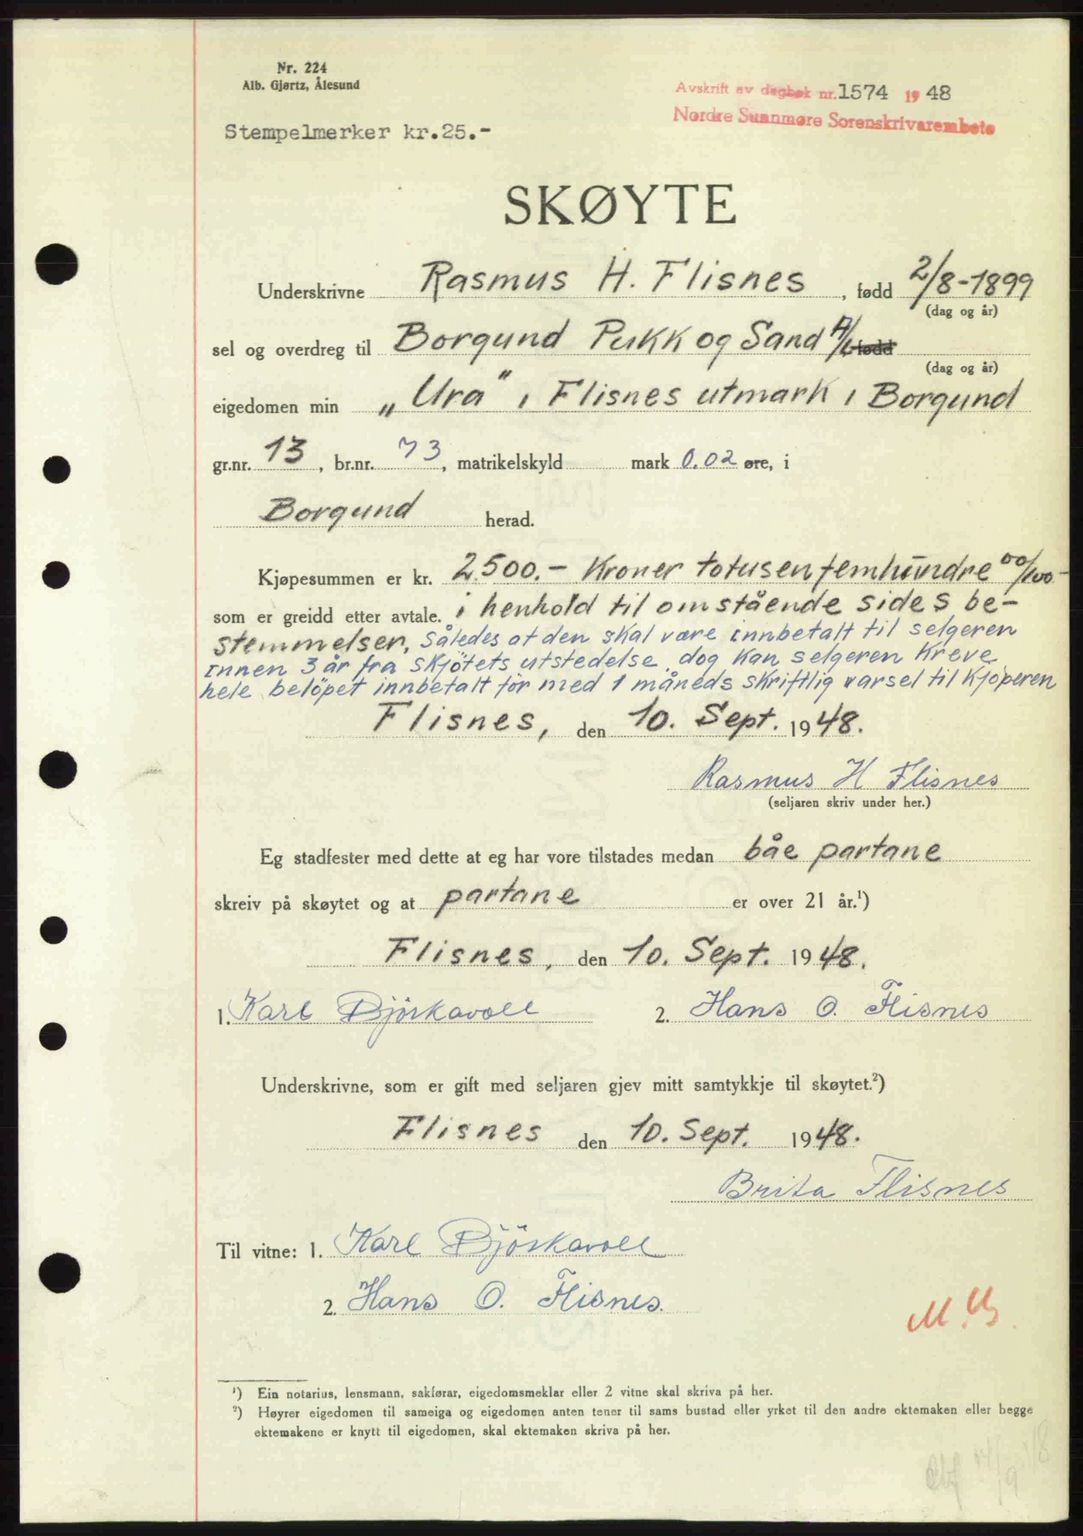 Nr. 224
Alb. Gjørtz, Ålesund
Avskrift av dagbok nr. 1574 19 48
Nordre Sunnmøre Sorenskrivarembete
Stempelmerker kr.25.-
SKØYTE
Underskrivne Rasmus H. Flisnes, fødd 2/8-1899
(dag og år)
sel og overdreg til Borgund Pukk og Sand A/L fødd
(dag og år)
eigedomen min „Ura" i Flisnes utmark i Borgund
gr.nr. 13, br.nr. 73, matrikelskyld mark 0.02 øre, i
Borgund herad.
Kjøpesummen er kr. 2.500.- Kroner totusenfemhundre 00/100-
som er greidd etter avtale. i henhold til omstående sides be-
stemmelser, således at den skal være innbetalt til selgeren
innen 3 år fra skjötets utstedelse, dog kan selgeren kreve
hele belöpet innbetalt för med 1 måneds skriftlig varsel til kjöperen
Flisnes, den 10. Sept. 1948.
Rasmus H Flisnes
(seljaren skriv under her.)
Eg stadfester med dette at eg har vore tilstades medan båe partane
skreiv på skøytet og at partane er over 21 år.¹)
Flisnes, den 10. Sept. 1948.
1. Karl Björkavoll 2. Hans O. Flisnes
Underskrivne, som er gift med seljaren gjev mitt samtykkje til skøytet.²)
Flisnes den 10. Sept. 1948.
Brita Flisnes
Til vitne: 1. Karl Björkavoll
2. Hans O. Flisnes.
¹) Ein notarius, lensmann, sakførar, eigedomsmeklar eller 2 vitne skal skriva på her.
²) Høyrer eigedomen til sameiga og eigedomen anten tener til sams bustad eller yrket til den andre ektemaken eller begge
ektemakene er knytt til eigedomen, skal ektemaken skriva på her.